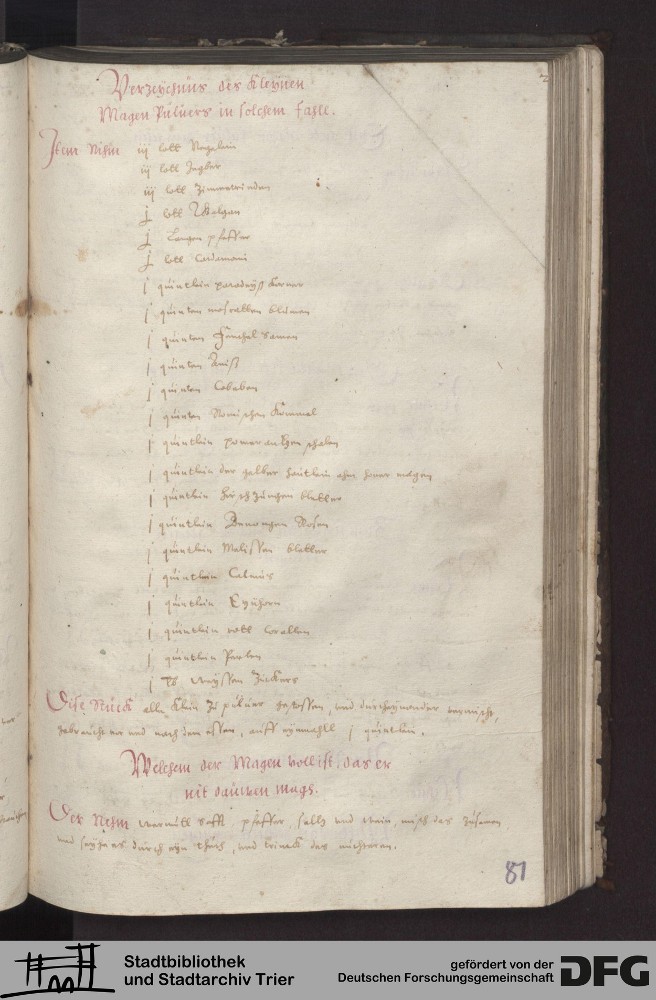 Verzeychnüs des Kleynen
Magen Pulvers in solchem fahle.
Item Nihm iij lott Negelein
iij lott Ingber
iij lott Zimmetrinden
j lott Galgan
j Langen pfeffer
j lott Cardamomi
j quintlein paradeyß Körner
j quinten moscatten blumen
j quinten Fenchel Samen
j quinten Aniß
j quinten Cobeben
j quinten Römischen Kümmel
j quintlein pomerantzen schalen
j quintlein der gelben heutlein auß hener magen
j quintlein hirschzungen bletter
j quintlein Rosen
j quintlein Melissen bletter
j quintlein Calmus
j quintlein Eynhorn
j quintlein rott Corallen
j quintlein Perlen
j lb weyssen Zuckers
Dise Stück alle klein zu pulver gestossen, und durcheynander vermischt,
gebraucht vor und nach dem essen, auff eynmahll j quintlein.
Welchem der Magen voll ist, das er
nit dauwen mags.
Der Nihm wermutt safft, pfeffer, saltz und wein, misch das zusamen
und seyhe es durch eyn thuch, und trinck das nüchteren.
81
Stadtbibliothek
und Stadtarchiv Trier
gefördert von der
Deutschen Forschungsgemeinschaft
DFG